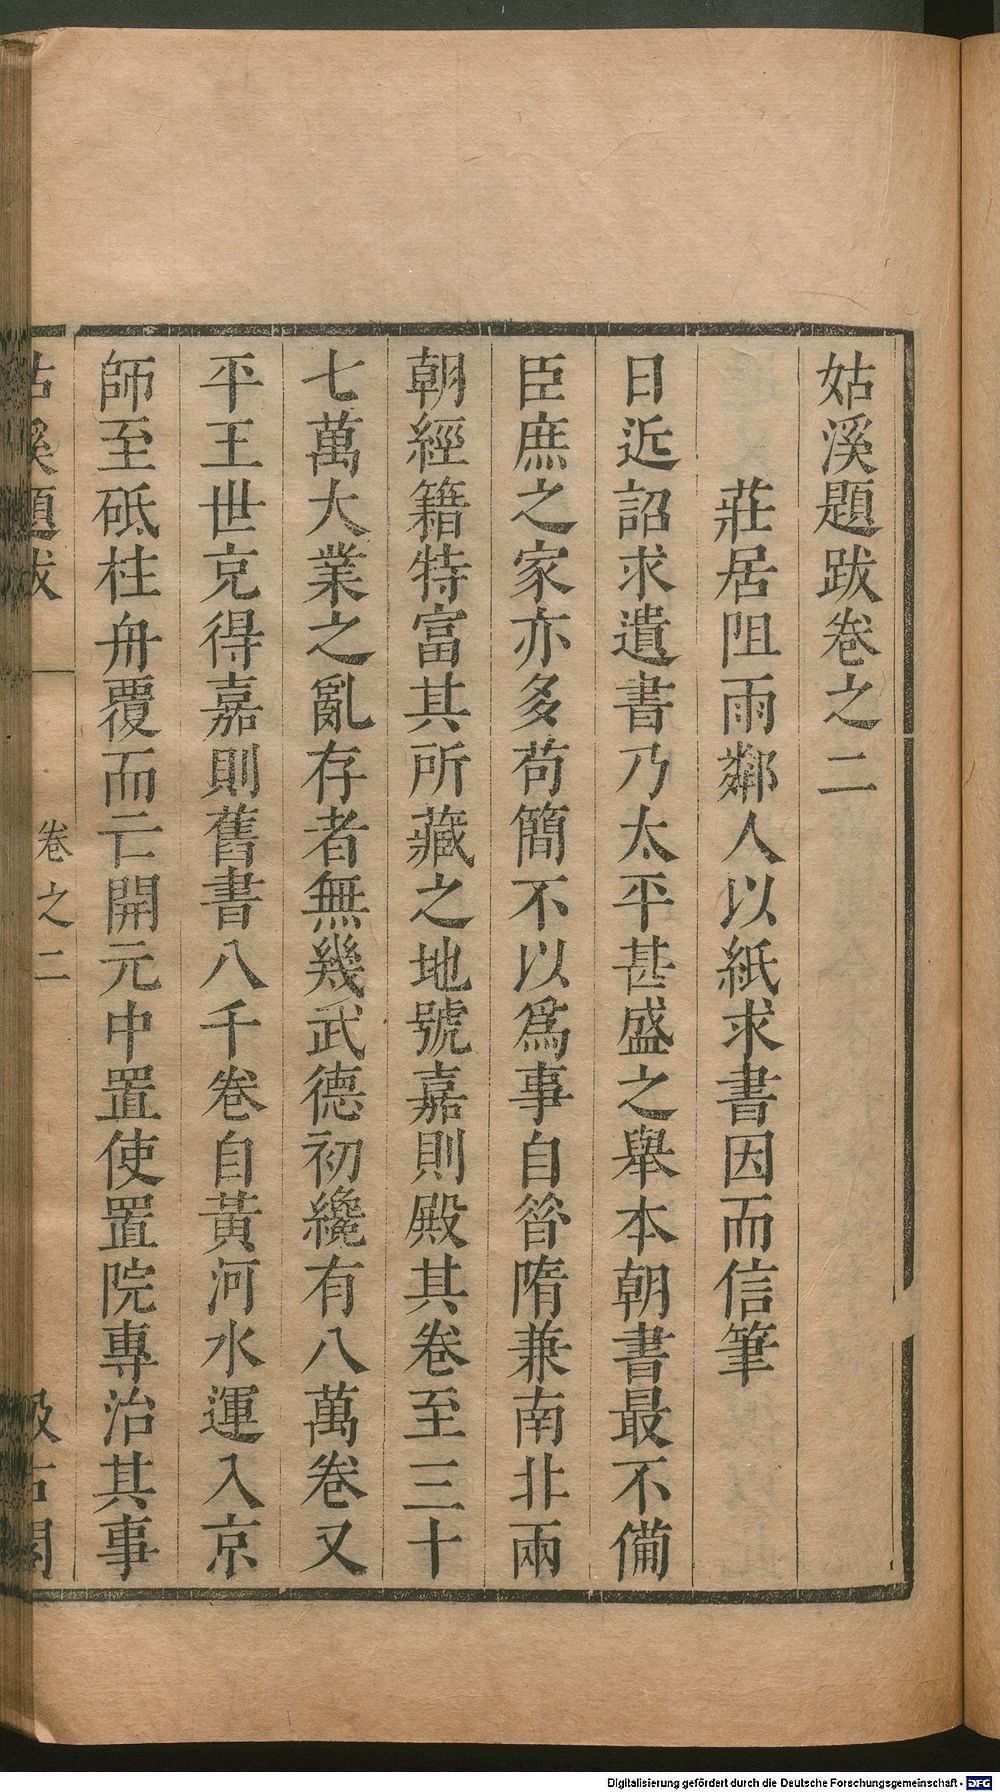 姑溪題跋卷之二
莊居阻雨鄰人以紙求書因而信筆
日近詔求遺書乃太平甚盛之舉本朝書最不備
臣庶之家亦多苟簡不以爲事自晉隋兼南北兩
朝經籍特富其所藏之地號嘉則殿其卷至三十
七萬大業之亂存者無幾武德初纔有八萬卷又
平王世充得嘉則舊書八千卷自黃河水運入京
師至砥柱舟覆而亡開元中置使置院專治其事
姑溪題跋 卷之二 汲古閣
Digitalisierung gefördert durch die Deutsche Forschungsgemeinschaft - DFG